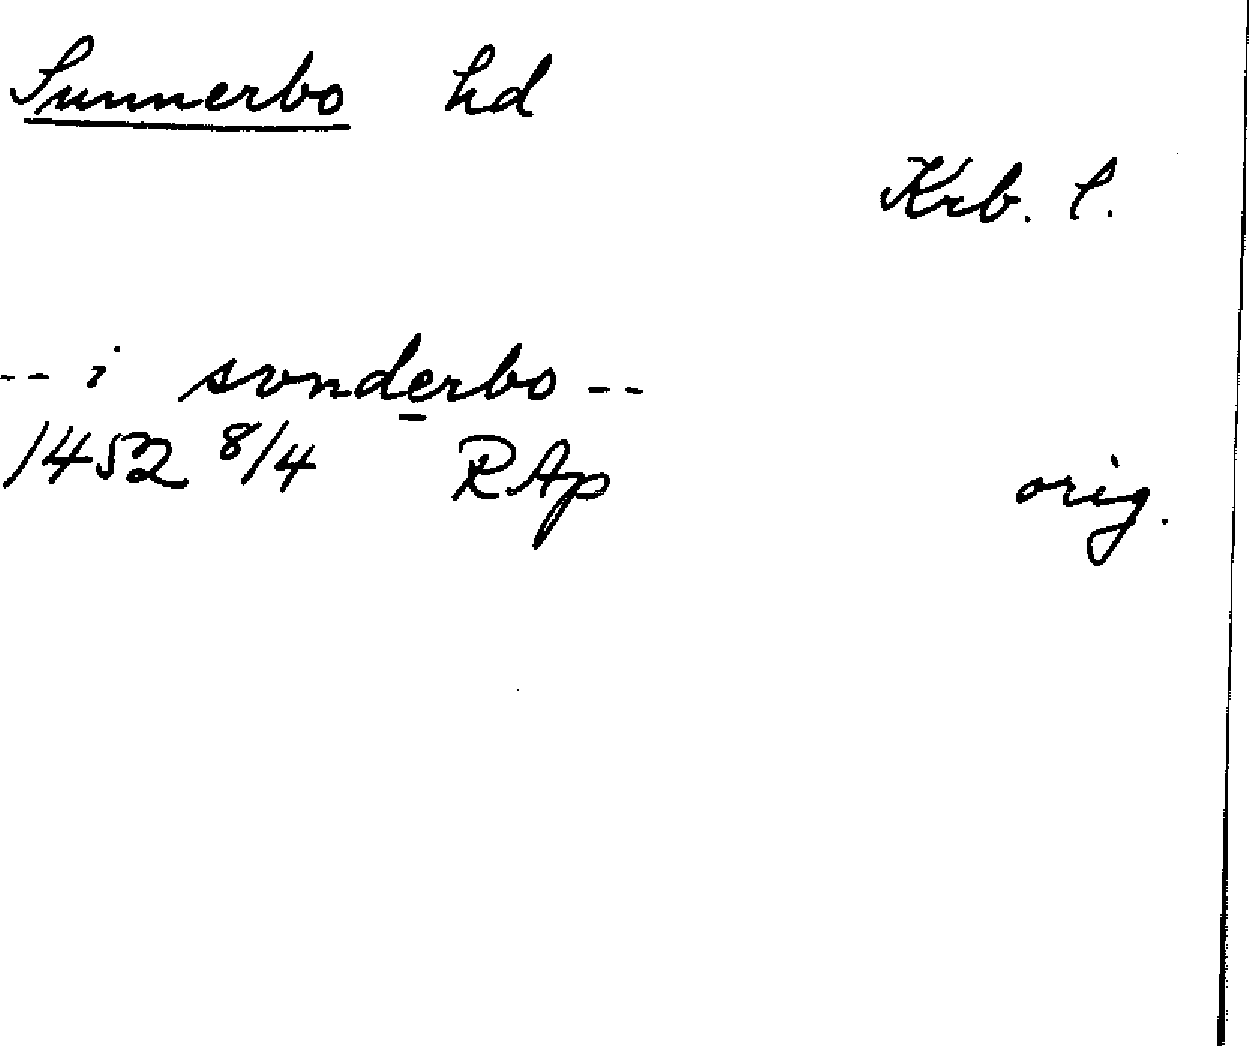 Sunnerbo hd
Krb. l.
-- i svnderbo --
1452 8/4 RAp orig.